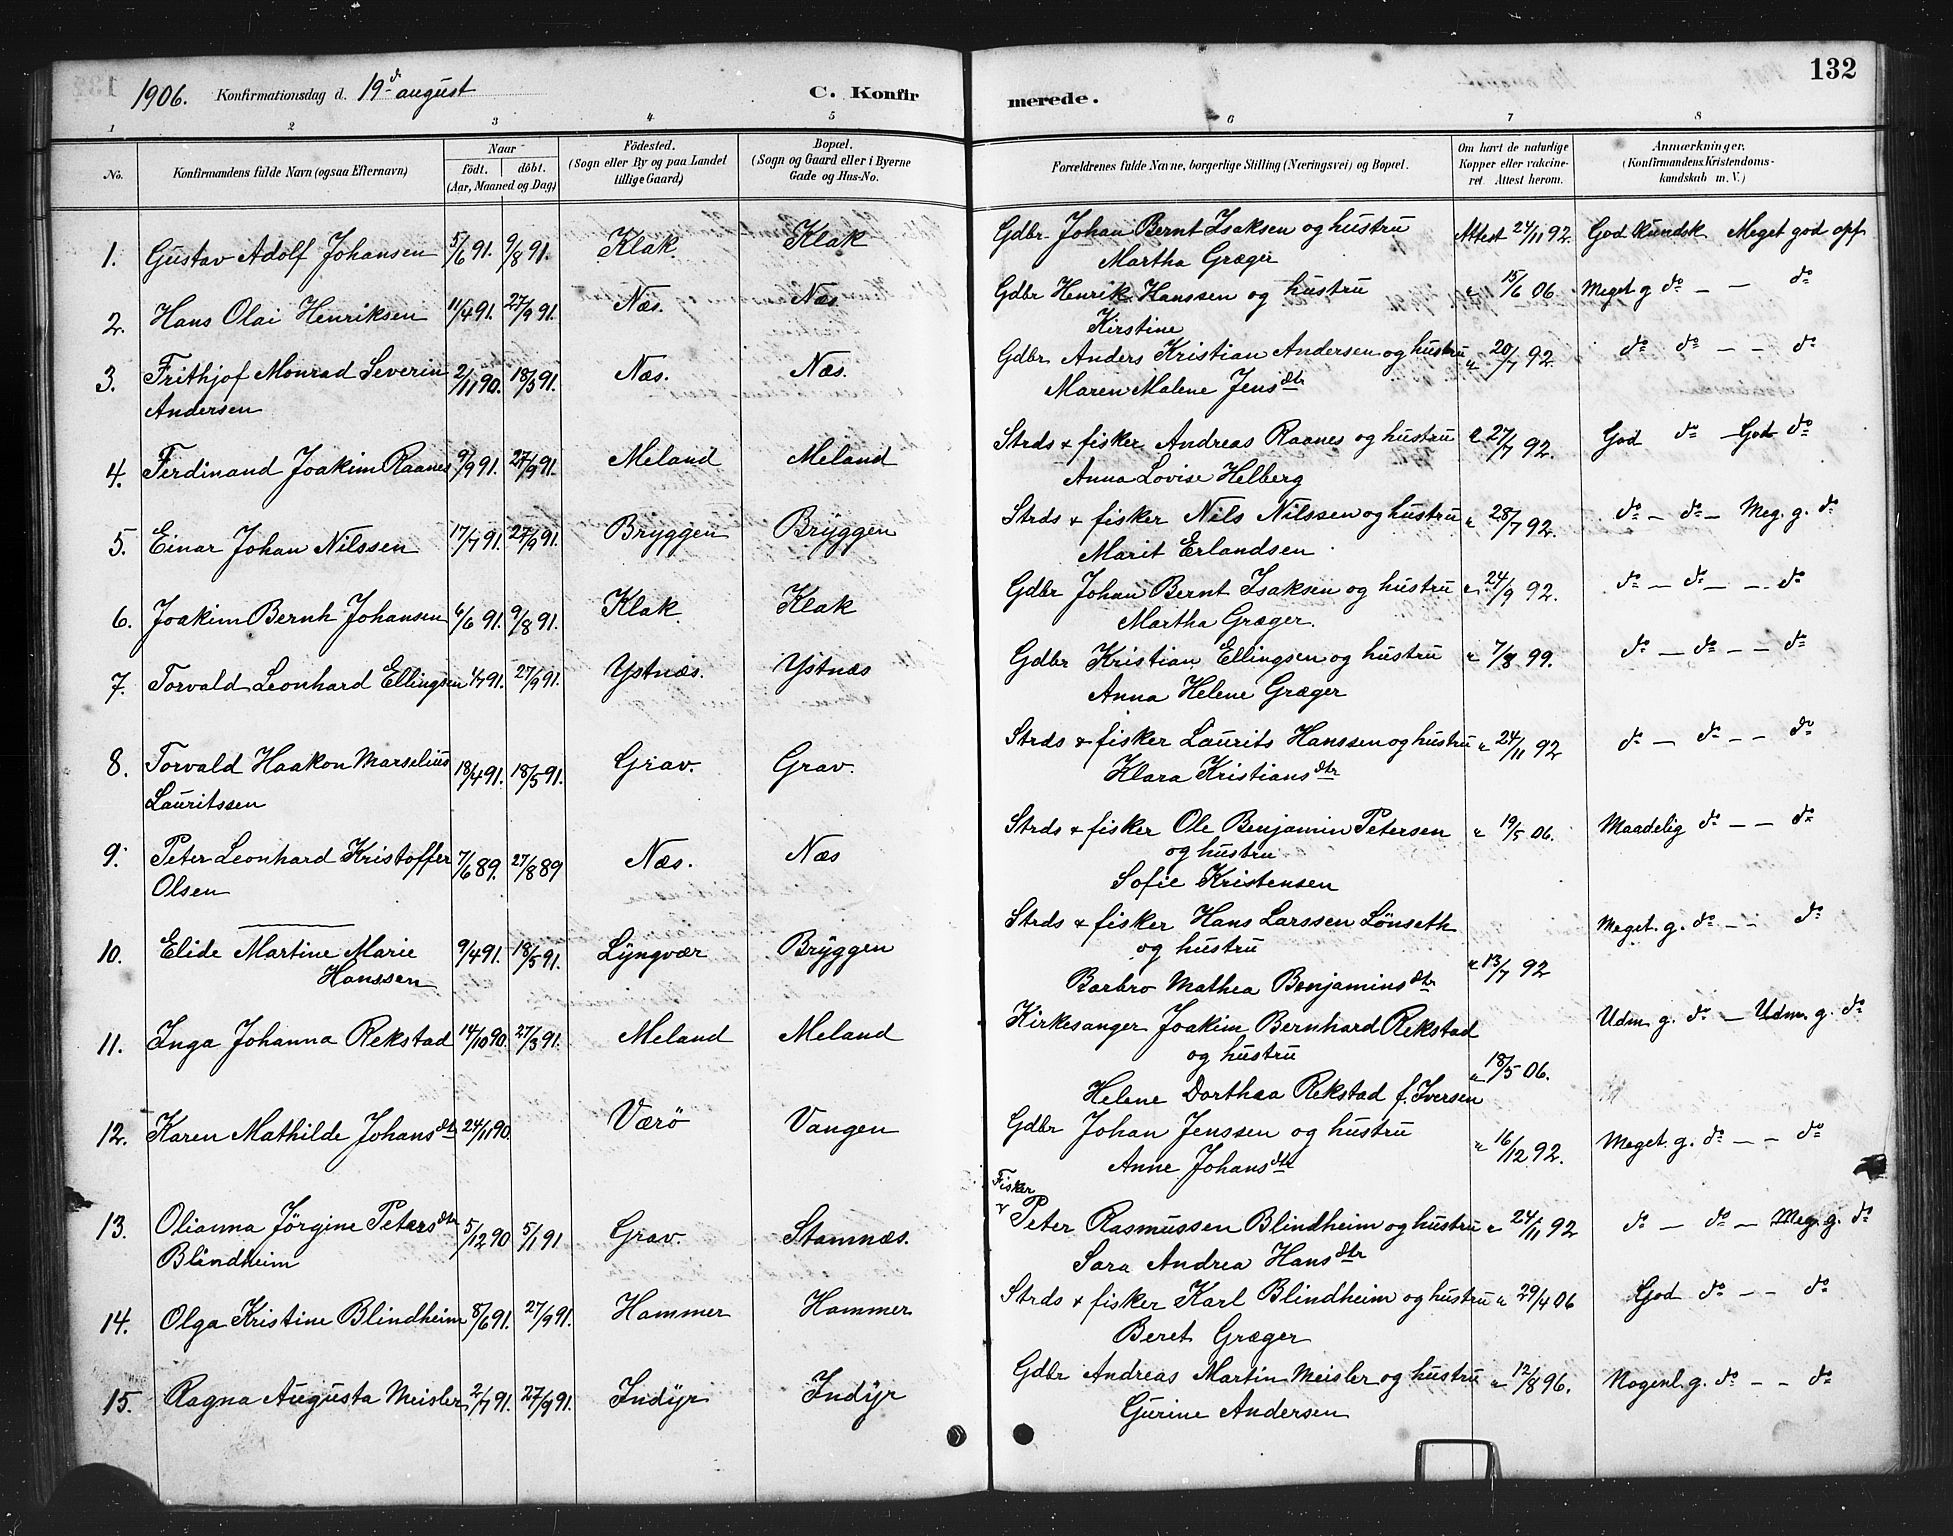 132
1906. Konfirmationsdag d. 19de august C. Konfirmerede.
1 2 3 4 5 6 7 8
No. Konfirmandens fulde Navn (ogsaa Efternavn) Naar födt. döbt. (Aar, Maaned og Dag) Födested. (Sogn eller By og paa Landet tillige Gaard) Bopæl. (Sogn og Gaard eller i Byerne Gade og Hus-No. Forældrenes fulde Navne, borgerlige Stilling (Næringsvei) og Bopæl. Om havt de naturlige Kopper eller vakcineret. Attest herom. Anmærkninger. (Konfirmandens Kristendomskundskab m. V.)
1. Gustav Adolf Johansen 5/6 91. 9/8 91. Klak. Klak Gdbr Johan Bernt Isaksen og hustru Attest 24/11 92. God kundsk Meget god opf
Martha Græger
2. Hans Olai Henriksen 11/4 91. 27/9 91. Næs. Næs. Gdbr Henrik Hanssen og hustru " 15/6 06. Meget g do — — do
Kirstine
3. Frithjof Monrad Severin 2/11 90. 18/3 91. Næs. Næs. Gdbr Anders Kristian Andersen og hustru " 20/7 92. do do — — do
Andersen Maren Malene Jensdtr
4. Ferdinand Joakim Raanes 9/9 91. 27/9 91. Meland Meland Strds & fisker Andreas Raanes og hustru " 27/7 92. God do — God do
Anna Lovise Helberg
5. Einar Johan Nilssen 17/7 91. 27/9 91. Bryggen Bryggen Strds & fisker Nils Nilssen og hustru " 28/7 92. do — do — Meg. g. do
Marit Erlandsen
6. Joakim Bernh Johansen 6/6 91. 9/8 91. Klak. Klak Gdbr Johan Bernt Isaksen og hustru " 24/9 92. do — do — — do
Martha Græger.
7. Torvald Leonhard Ellingsen 1/7 91. 27/9 91. Ystnæs. Ystnæs Gdbr Kristian Ellingsen og hustru " 7/8 99. do — do — — do
Anna Helene Græger
8. Torvald Haakon Marselius 18/4 91. 18/5 91. Grav. Grav. Strds & fisker Laurits Hanssen og hustru " 24/11 92 do — do — — do
Lauritssen Klara Kristiansdtr
9. Peter Leonhard Kristoffer 7/6 89. 27/8 89 Næs. Næs Strds & fisker Ole Benjamin Petersen " 19/5 06. Maadelig do — — do
og hustru
Olsen Sofie Kristensen
10. Elide Martine Marie 9/4 91. 18/5 91. Lyngvær Bryggen Strds & fisker Hans Larssen Lönseth Meget. g. do — — do
og hustru
Hanssen Barbro Mathea Benjaminsdtr " 13/7 92
11. Inga Johanna Rekstad 14/10 90. 27/3 91. Meland Meland Kirkesanger Joakim Bernhard Rekstad Udm. g. do — Udm. g. do
og hustru " 18/5 06.
Helene Dorthea Rekstad f. Iversen
12. Karen Mathilde Johansdtr 24/11 90. Værö Vangen Gdbr Johan Jenssen og hustru " 16/12 92. Meget. g. do — — do
Anne Johansdtr
13. Olianna Jörgine Petersdtr 5/12 90 5/1 91 Grav. Stamnæs. Fisker Peter Rasmussen Blindheim og hustru " 24/11 92 do — do — Meg. g. do
Blindheim Sara Andrea Hansdtr
14. Olga Kristine Blindheim 8/6 91. 27/9 91. Hammer Hammer Strds & fisker Karl Blindheim og hustru " 29/4 06 God do — — do
Beret Græger
15. Ragna Augusta Meisler 2/7 91. 27/9 91. Indyr Indyr Gdbr Andreas Martin Meisler og hustru " 12/8 96. Nogenl. g. do — — do
Gurine Andersen